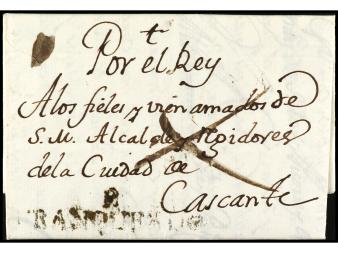 Por el Rey
A los fieles y vien amados de
S. M. Alcaldes Rejidores
de la Cuidad de
Cascante